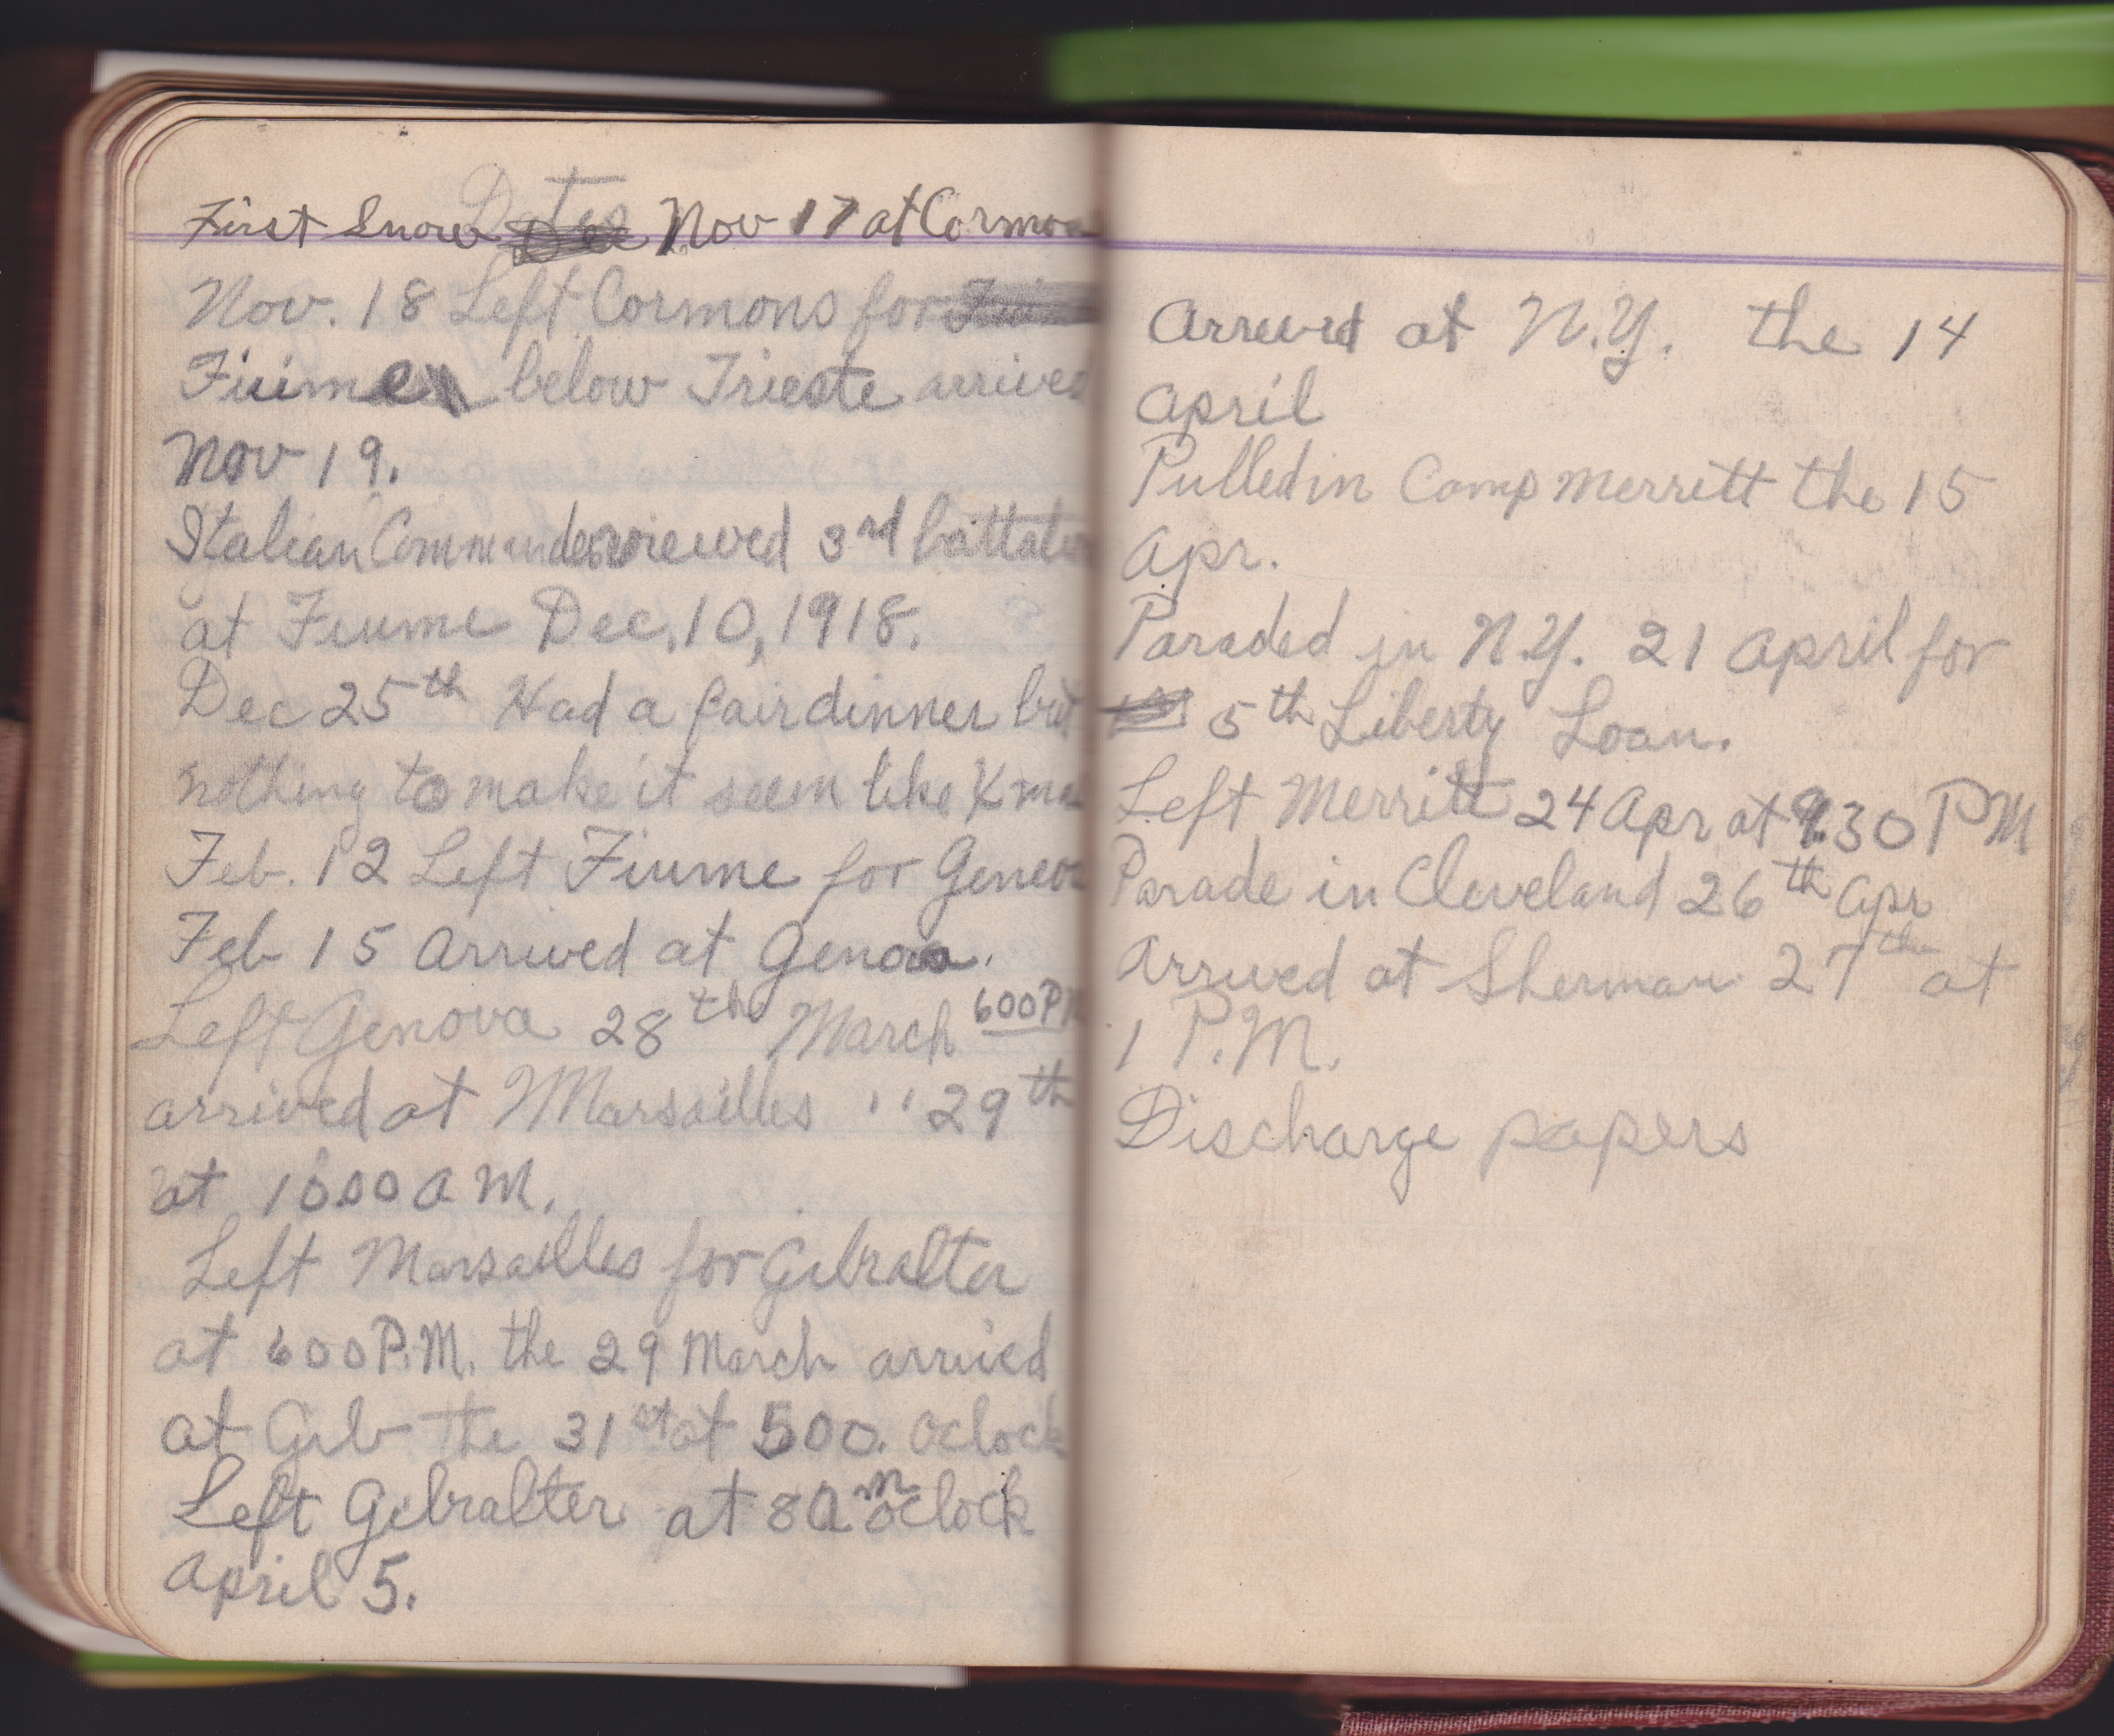 Dates
First Snow Nov 17 at Cormon
Nov. 18 Left Cormons for
Fiume below Trieste arrived
Nov 19.
Italian Commander reviewed 3rd battalio
at Fiume Dec. 10, 1918.
Dec 25th Had a fair dinner but
nothing to make it seem like Xma
Feb. 12 Left Fiume for Genova
Feb 15 Arrived at Genova.
Left Genova 28th March 600 PM
arrived at Marsailles " 29th
at 1000 A M.
Left Marsailles for Gibralter
at 600 P.M. the 29 March arrived
at Gib the 31st at 500. Oclock
Left Gibralter at 8 Am oclock
April 5.
Arrived at N.Y. the 14
April
Pulled in Camp Merritt the 15
Apr.
Paraded in N.Y. 21 April for
5th Liberty Loan.
Left Merritt 24 Apr at 930 PM
Parade in Cleveland 26th Apr
Arrived at Sherman 27th at
1 P.M.
Discharge papers